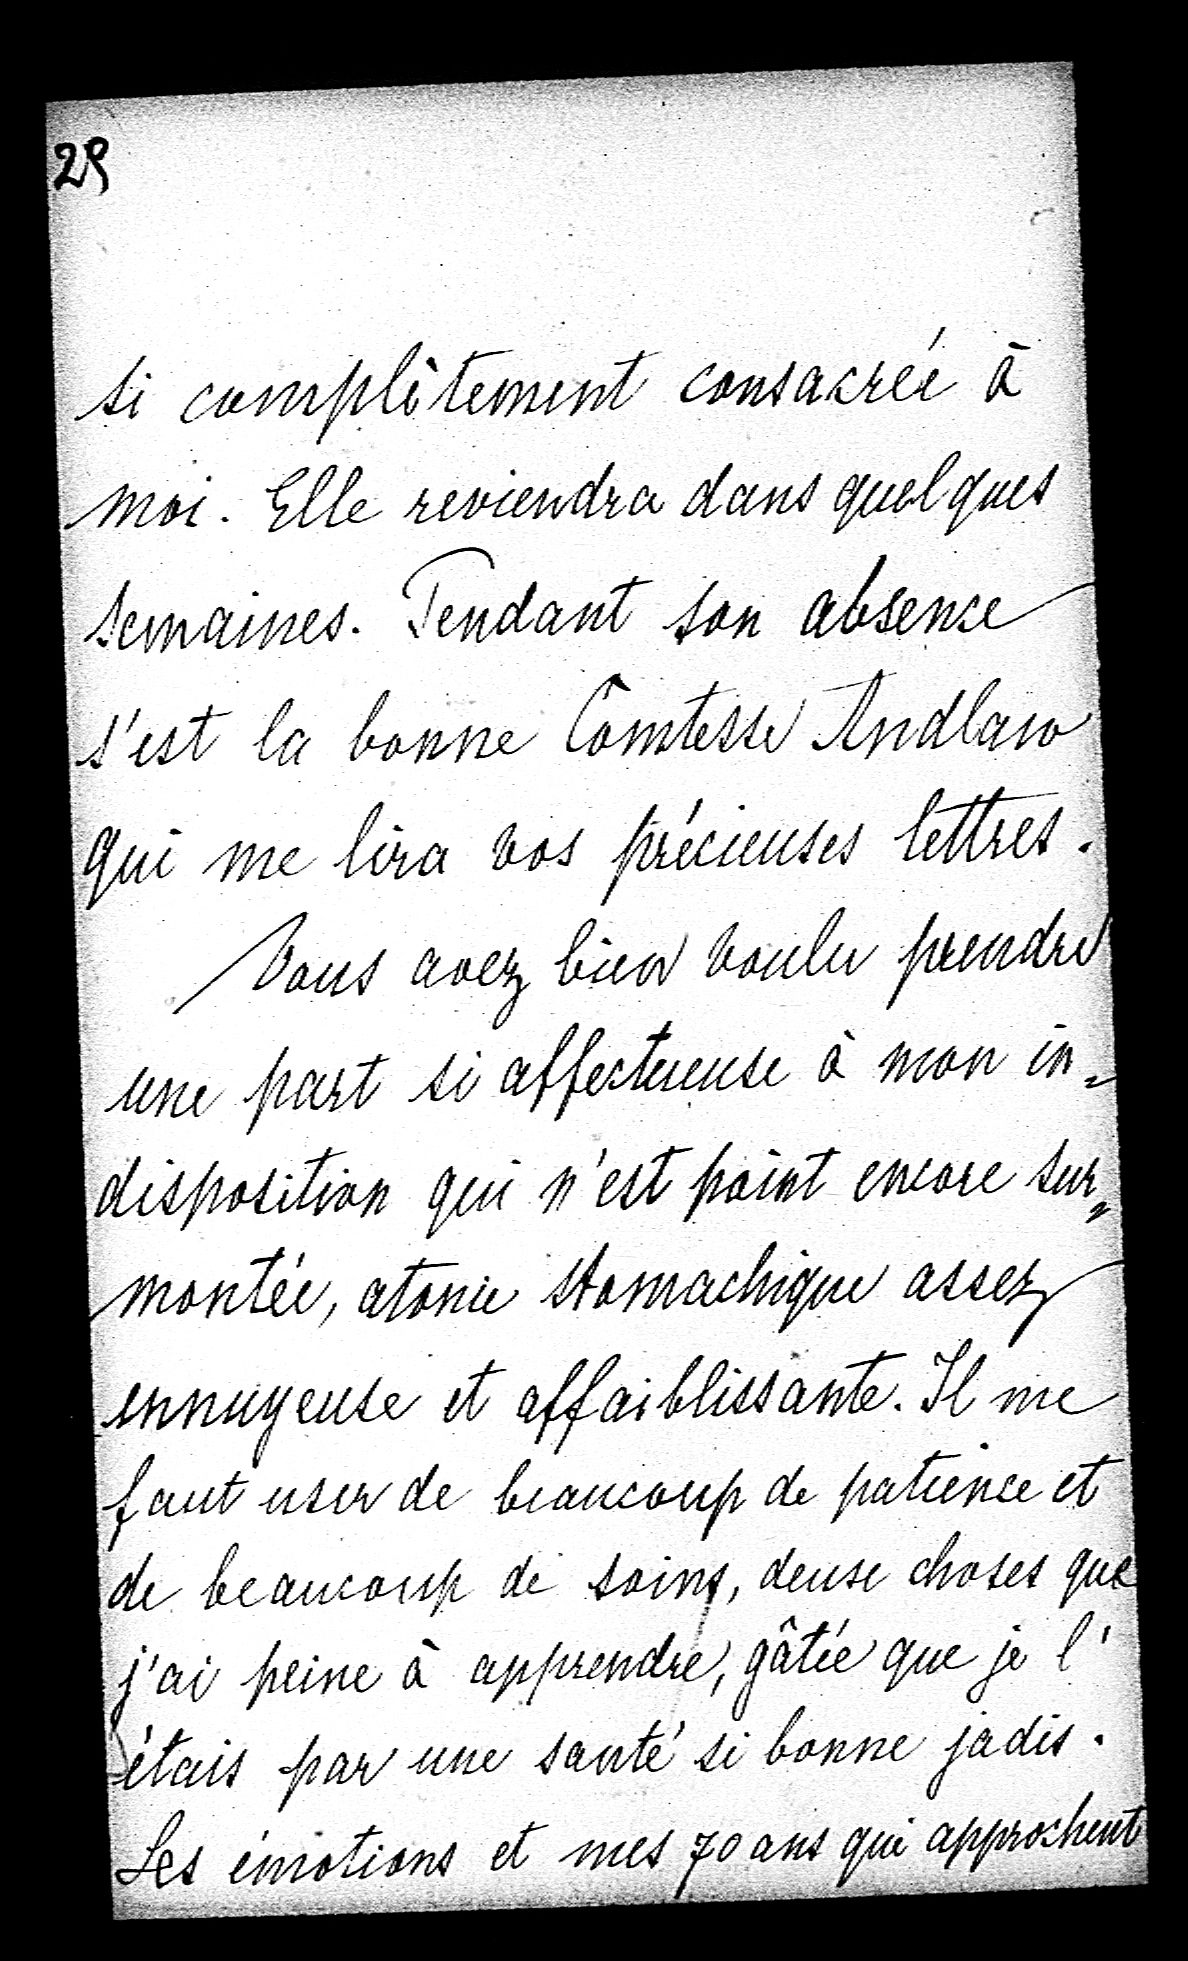 29
si complètement consacrée à
moi. Elle reviendra dans quelques
semaines. Pendant son absence
s'est la bonne Comtesse Andlaw
qui me lira vos précieuses lettres.
Vous avez bien voulu prendre
une part si affectueuse à mon in=
disposition qui n'est point encore sur=
montée, atonie stomachique assez
ennuyeuse et affaiblissante. Il me
faut user de beaucoup de patience et
de beaucoup de soins, deuse choses que
j'ai peine à apprendre, gâtée que je l'
étais par une santé si bonne jadis.
Les émotions et mes 70 ans qui approchent